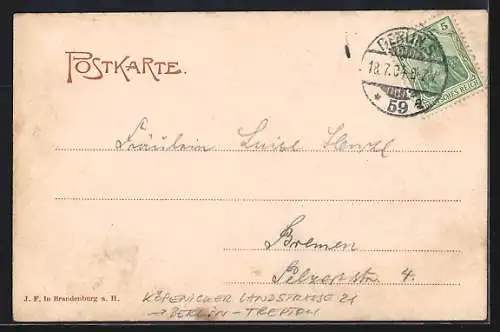 POSTKARTE.
BERLIN S
18.7.04
* 59 a
5
DEUTSCHES REICH
Fräulein Luise
Bremen
Pelzerstr. 4.
J. F. in Brandenburg a. H.
KÖPENICKER LANDSTRASSE 21
→ BERLIN - TREPTOW